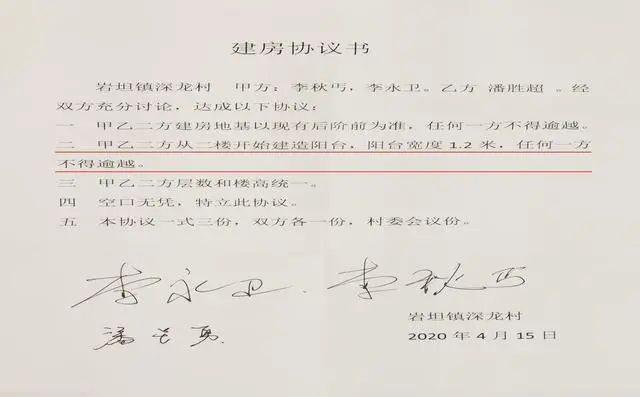 建房协议书
岩坦镇深龙村 甲方：李秋丐，李永卫。乙方 潘胜超 。经
双方充分讨论，达成以下协议：
一 甲乙二方建房地基以现有后阶前为准，任何一方不得逾越。
二 甲乙二方从二楼开始建造阳台，阳台宽度 1.2 米，任何一方
不得逾越。
三 甲乙二方层数和楼高统一。
四 空口无凭，特立此协议。
五 本协议一式三份，双方各一份，村委会议份。
李永卫．李秋丐
潘
岩坦镇深龙村
2020 年 4 月 15 日